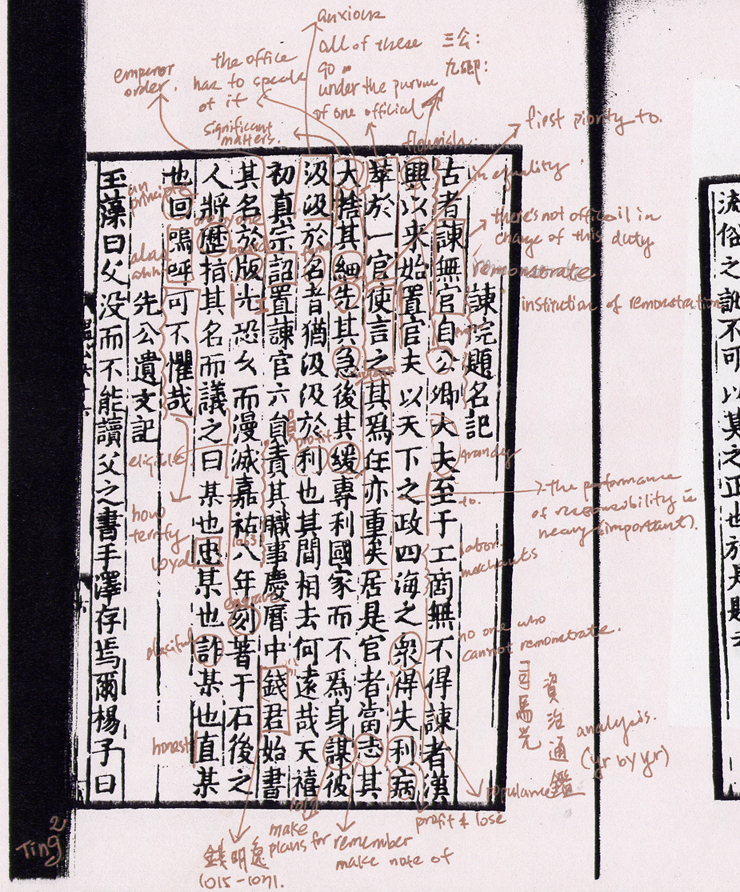 anxious
all of these
go
under the purvue
of one official
三公:
九卿:
the office
has to speak
of it
emperor
order.
significant
matters.
flourish
first piority to.
in equality
there's not officeil in
charge of this duty
remonstrate
instruction of remonstration
流俗之訛不可以莫之正也於是
諫院題名記
古者諫無官自公卿大夫至于工商無不得諫者漢
興以来始置官夫以天下之政四海之衆得失利病
萃於一官使言之其爲任亦重矣居是官者當志其
大捨其細先其急後其緩專利國家而不爲身謀彼
汲汲於名者猶汲汲於利也其間相去何遠哉天禧
初真宗詔置諫官六員責其職事慶曆中錢君始書
其名於版光恐久而漫滅嘉祐八年刻著于石後之
人將歷指其名而議之曰某也忠某也詐某也直某
也回嗚呼可不懼哉
先公遺文記
玉藻曰父没而不能讀父之書手澤存焉爾楊子曰
principle
everyone
profit
eligible
how
terrify
loyal
honest
grander
to.
the performance
of responsibility is
heavy (important).
labor
merchants
no one who
cannot remonstrate.
司馬光
資治通鑑
analysis.
(yr by yr)
populance
profit & lose
make
plans for
remember
make note of
錢明逸
1015-1071.
Ting 2